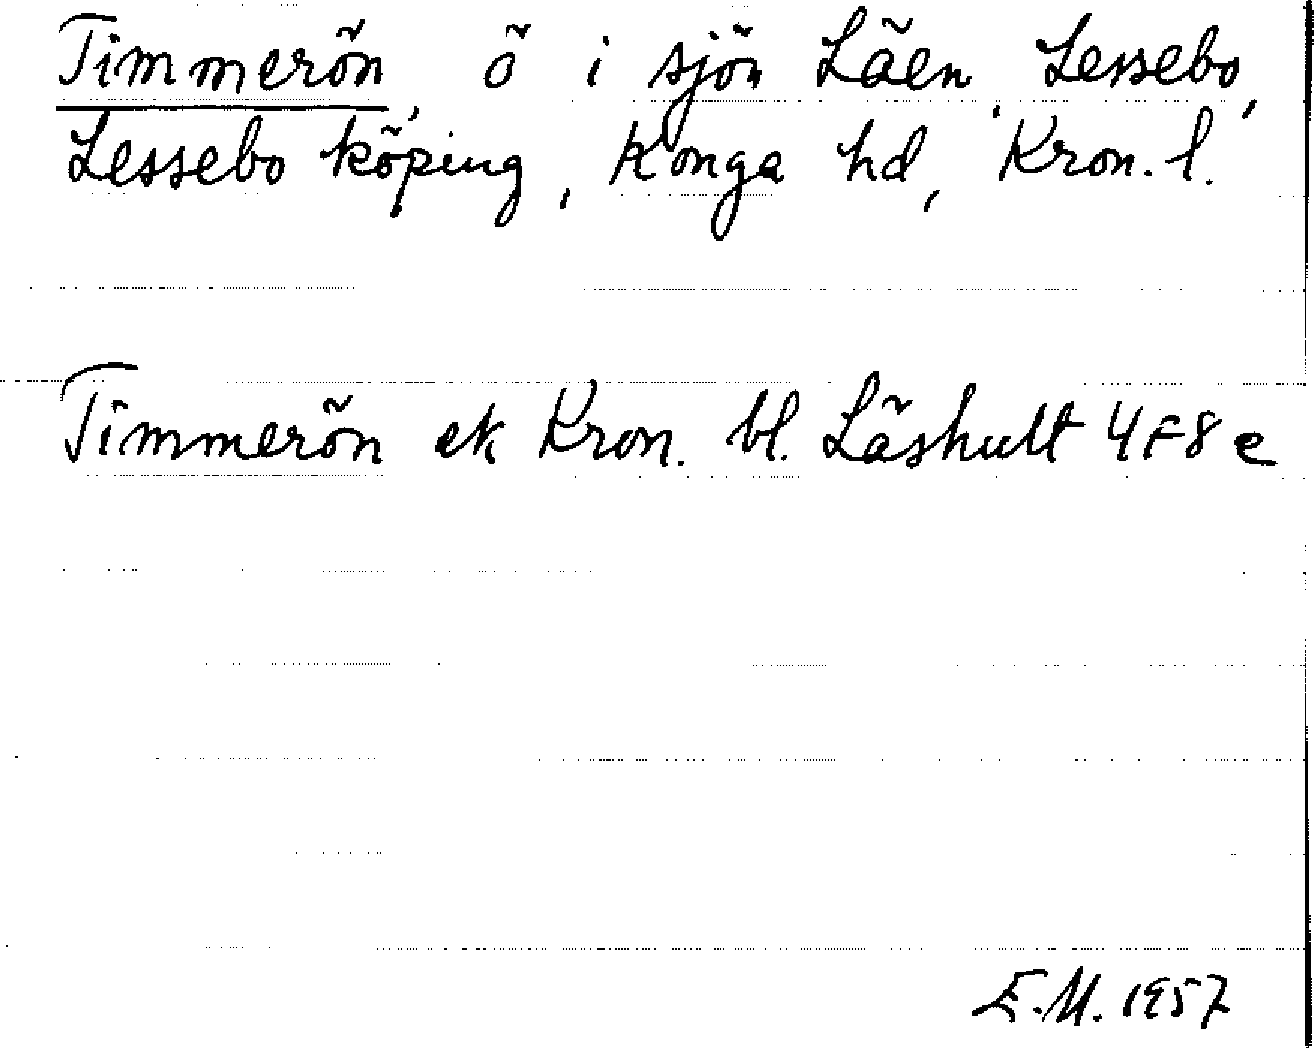 Timmerön, ö i sjön Läen, Lessebo,
Lessebo köping, Konga hd, Kron. l.
Timmerön ek Kron. bl. Läshult 4F8e
E.M. 1957